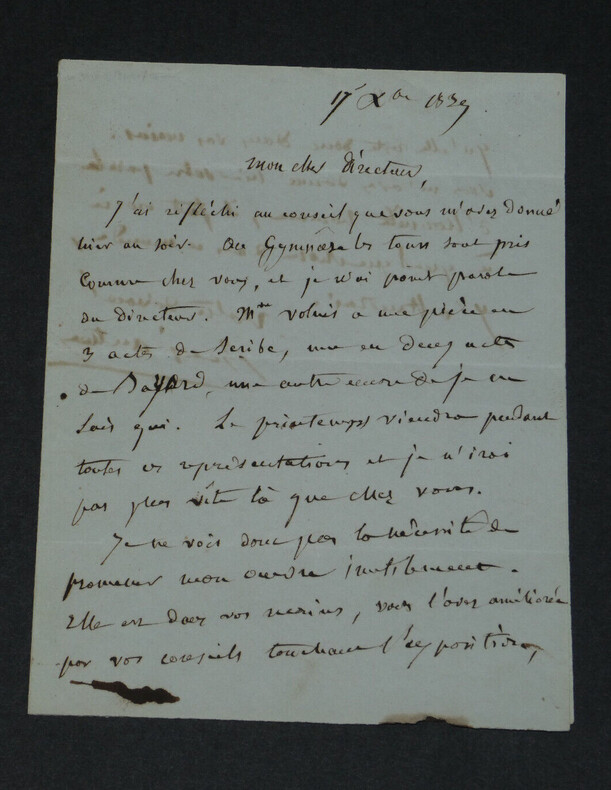 17 Xbre 1839
mon cher directeur,
J'ai réfléchi au conseil que vous m'avez donné
hier au soir. Au Gymnase les tours sont pris
comme chez vous, et je n'ai point parole
du directeur. Mme Volnis a une pièce en
3 actes de Scribe, une en deux actes
de Bayard, une autre encore de je ne
sais qui. Le printemps viendra pendant
toutes ces représentations et je n'irai
pas plus vite là que chez vous.
Je ne vois donc pas la nécessité de
promener mon inutilement.
Elle est dans vos mains, vous l'avez améliorée
par vos conseils touchant l'exposition,